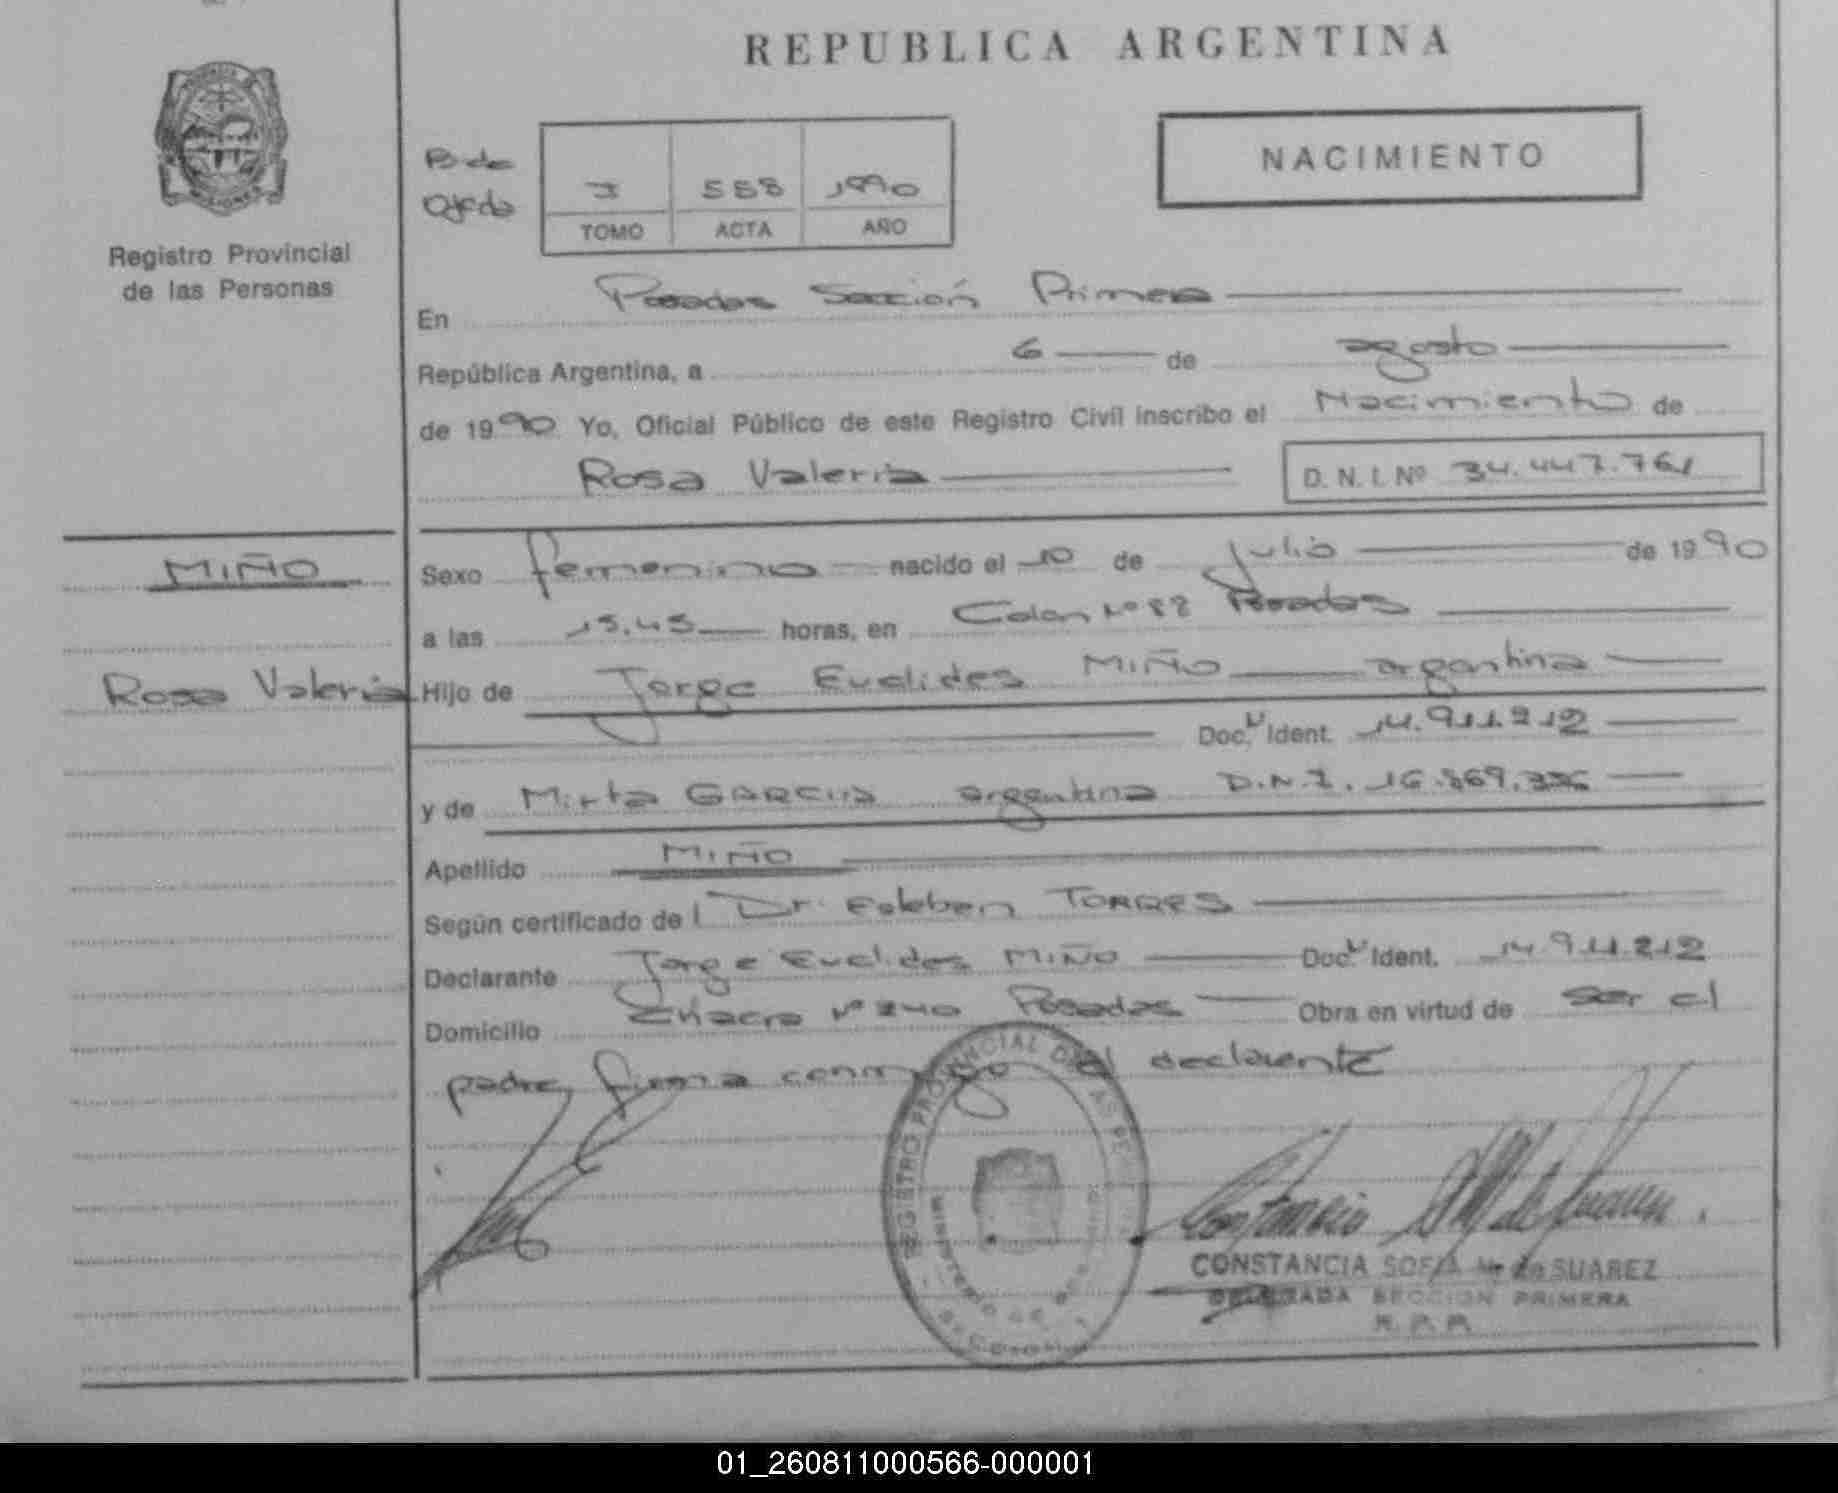 REPUBLICA ARGENTINA
NACIMIENTO
Registro Provincial
de las Personas
B. de
Ojeda
I 558 1990
TOMO ACTA AÑO
En Posadas Sección Primera
República Argentina, a 6 de agosto
de 1990 Yo, Oficial Público de este Registro Civil inscribo el Nacimiento de
Rosa Valeria D. N. I. Nº 34.447.761
MIÑO
Rosa Valeria
Sexo femenino nacido el 10 de julio de 1990
a las 15.45 horas, en Colon Nº Posadas
Hijo de Jorge Euclides MIÑO argentina
Doc. Ident. 14.911.212
y de Mirta GARCIA argentina D.N.I.
Apellido MIÑO
Según certificado del Dr. Esteban TORRES
Declarante Jorge Euclides MIÑO Doc. Ident. 14.911.212
Domicilio Chacra Nº 240 Posadas Obra en virtud de ser el
padre, firma conmigo el declarante
REGISTRO PROVINCIAL DE LAS PE
MINISTERIO DE
CONSTANCIA SOFIA M. de SUAREZ
DELEGADA SECCION PRIMERA
R. P. P.
01_260811000566-000001